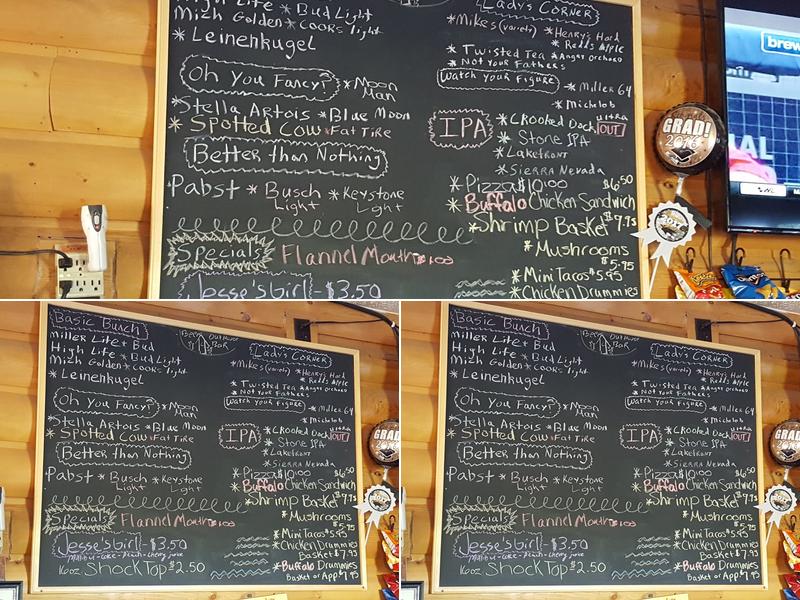 Mich Golden * Bud Light
* Coors light
* Leinenkugel
Oh You Fancy? * Moon Man
* Stella Artois * Blue Moon
* Spotted Cow * Fat Tire
Better than Nothing
Pabst * Busch Light * Keystone Light
Specials Flannel Mouth $
Jesse's Girl - $3.50
Lady's Corner
* Mikes (variety) * Henry's Hard
* Redds Apple
* Twisted Tea * Angry Orchard
* Not Your Fathers
Watch your Figure * Miller 64
* Michelob ultra
IPA * Crooked Dock OUT
* Stone IPA
* Lakefront
* Sierra Nevada
* Pizza $10.00
* Buffalo Chicken Sandwich $6.50
* Shrimp Basket $7.95
* Mushrooms $5.95
* Mini Tacos $5.95
* Chicken Drummies
GRAD!
2016
brew
Basic Bunch
Miller Lite + Bud
High Life * Bud Light
Mich Golden * Coors light
* Leinenkugel
Oh You Fancy? * Moon Man
* Stella Artois * Blue Moon
* Spotted Cow * Fat Tire
Better than Nothing
Pabst * Busch Light * Keystone Light
Specials Flannel Mouth $
Jesse's Girl - $3.50
16oz. Shock Top $2.50
Outdoor Bar
Lady's Corner
* Mikes (variety) * Henry's Hard
* Redds Apple
* Twisted Tea * Angry Orchard
* Not Your Fathers
Watch your Figure * Miller 64
* Michelob ultra
IPA * Crooked Dock OUT
* Stone IPA
* Lakefront
* Sierra Nevada
* Pizza $10.00
* Buffalo Chicken Sandwich $6.50
* Shrimp Basket $7.95
* Mushrooms $5.95
* Mini Tacos $5.95
* Chicken Drummies
Basket $7.95
* Buffalo Drummies
Basket or App $7.95
GRAD
Basic Bunch
Miller Lite + Bud
High Life * Bud Light
Mich Golden * Coors light
* Leinenkugel
Oh You Fancy? * Moon Man
* Stella Artois * Blue Moon
* Spotted Cow * Fat Tire
Better than Nothing
Pabst * Busch Light * Keystone Light
Specials Flannel Mouth $
Jesse's Girl - $3.50
16oz. Shock Top $2.50
Outdoor Bar
Lady's Corner
* Mikes (variety) * Henry's Hard
* Redds Apple
* Twisted Tea * Angry Orchard
* Not Your Fathers
Watch your Figure * Miller 64
* Michelob ultra
IPA * Crooked Dock OUT
* Stone IPA
* Lakefront
* Sierra Nevada
* Pizza $10.00
* Buffalo Chicken Sandwich $6.50
* Shrimp Basket $7.95
* Mushrooms $5.95
* Mini Tacos $5.95
* Chicken Drummies
Basket $7.95
* Buffalo Drummies
Basket or App $7.95
GRAD